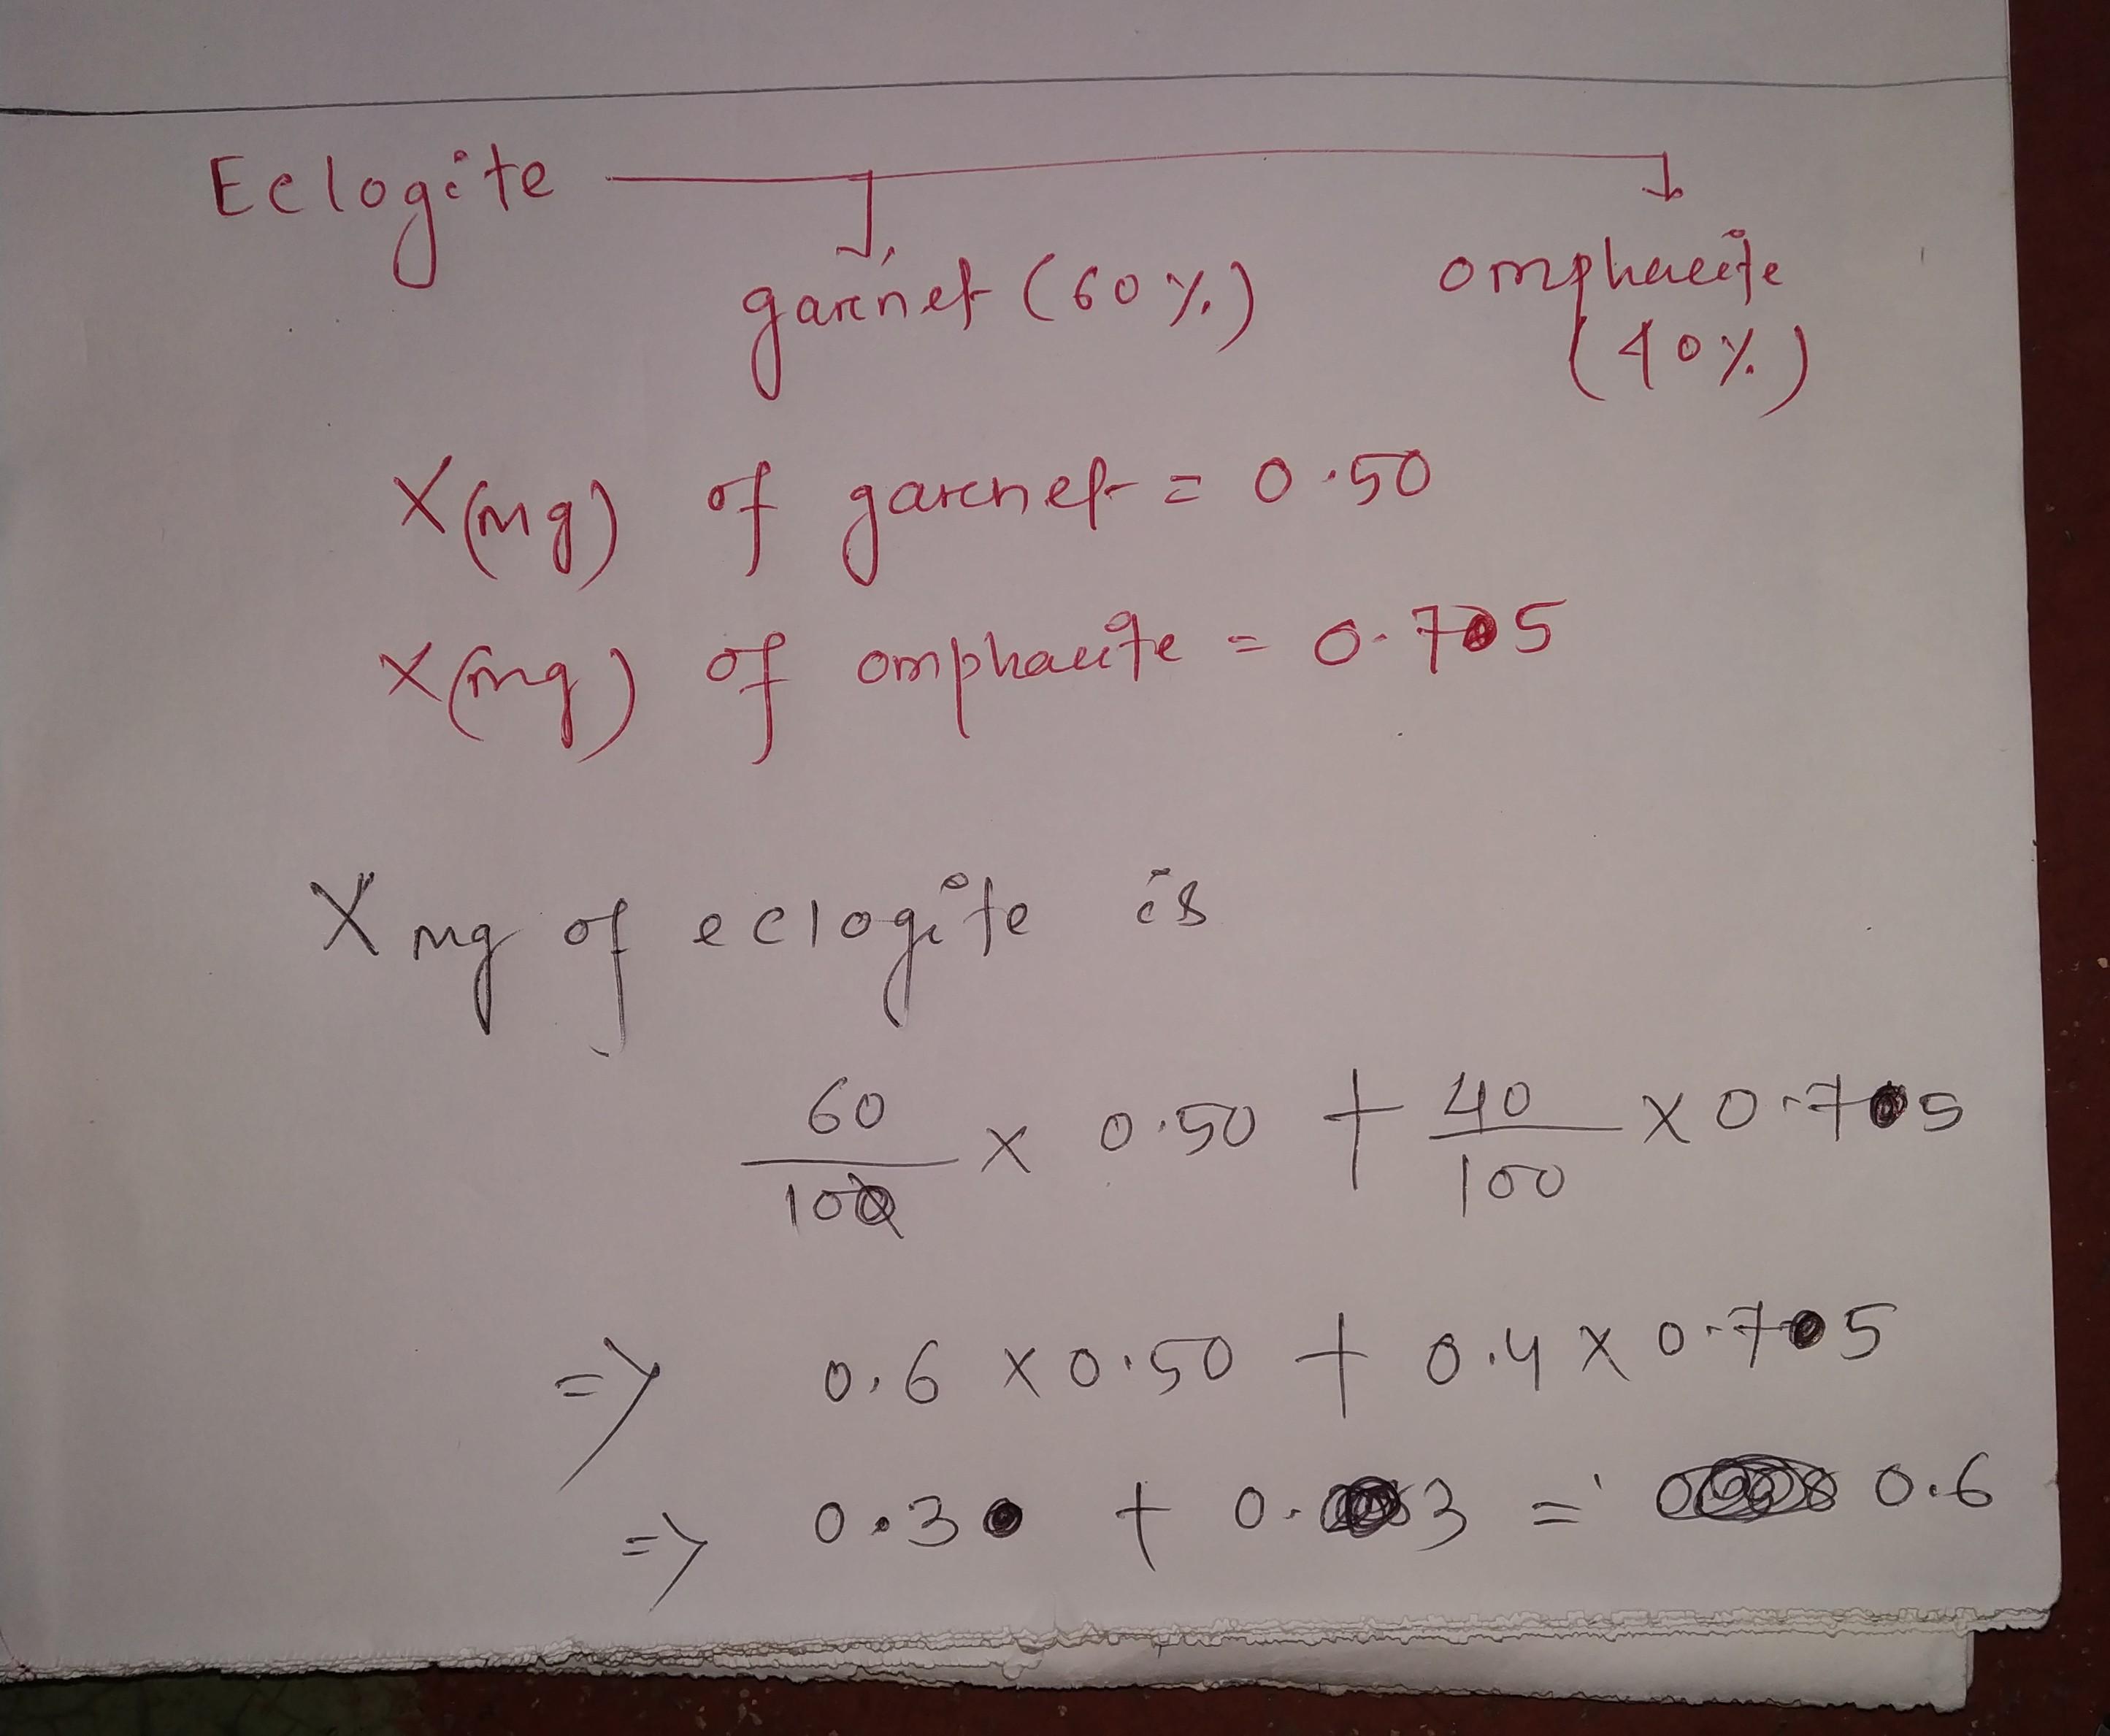 Eclogite
garnet (60%)
omphacite
(40%)
X(mg) of garnet = 0.50
X(mg) of omphacite = 0.75
X mg of eclogite is
60/100 × 0.50 + 40/100 × 0.75
=> 0.6 × 0.50 + 0.4 × 0.75
=> 0.3 + 0.3 = 0.6